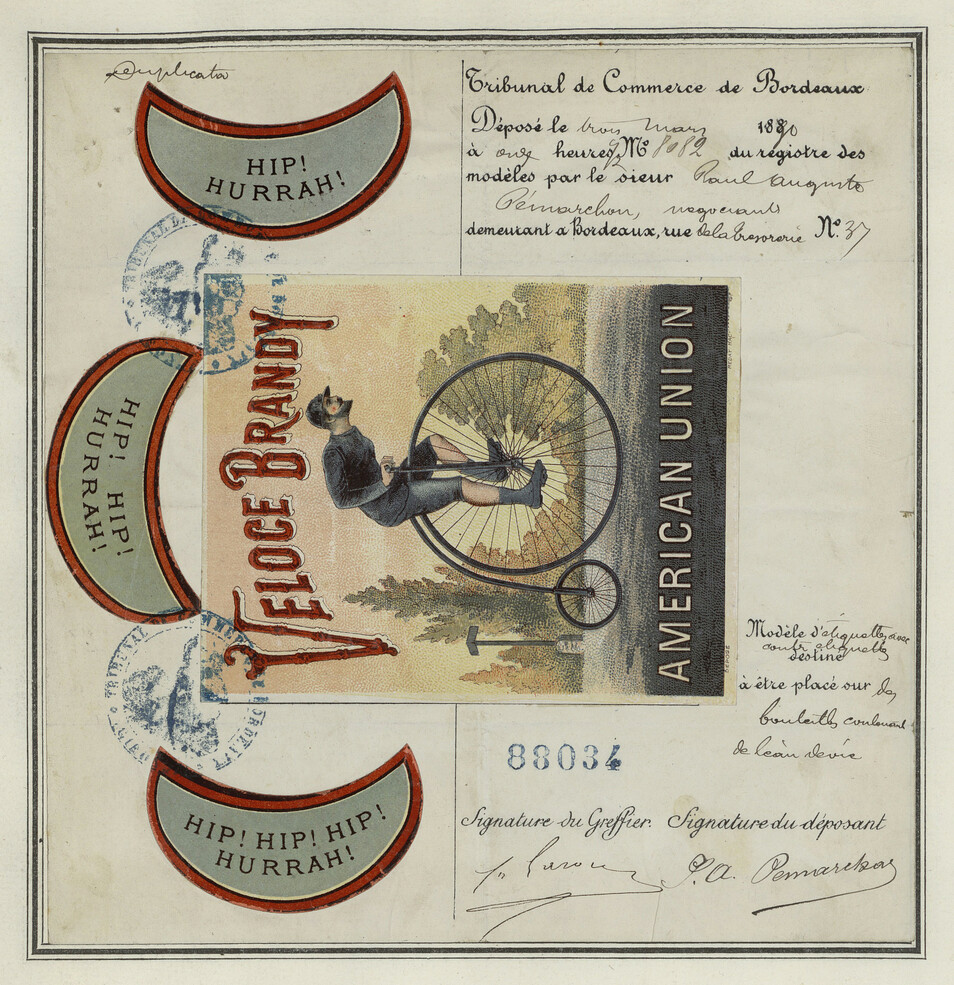 Duplicata
HIP!
HURRAH!
Tribunal de Commerce de Bordeaux
Déposé le trois mars 1890
à onze heures Nº 8082 du registre des
modèles par le sieur Paul Auguste
Pémarchon, négociant
demeurant a Bordeaux, rue de la tresorerie Nº 37
VELOCE BRANDY
AMERICAN UNION
HIP! HIP!
HURRAH!
Modèle d'étiquettes avec
contr étiquettes
destiné
à être placé sur des
bouteilles contenant
de l'eau de vie
88034
HIP! HIP! HIP!
HURRAH!
Signature du Greffier. Signature du déposant
P. A. Pemarchon